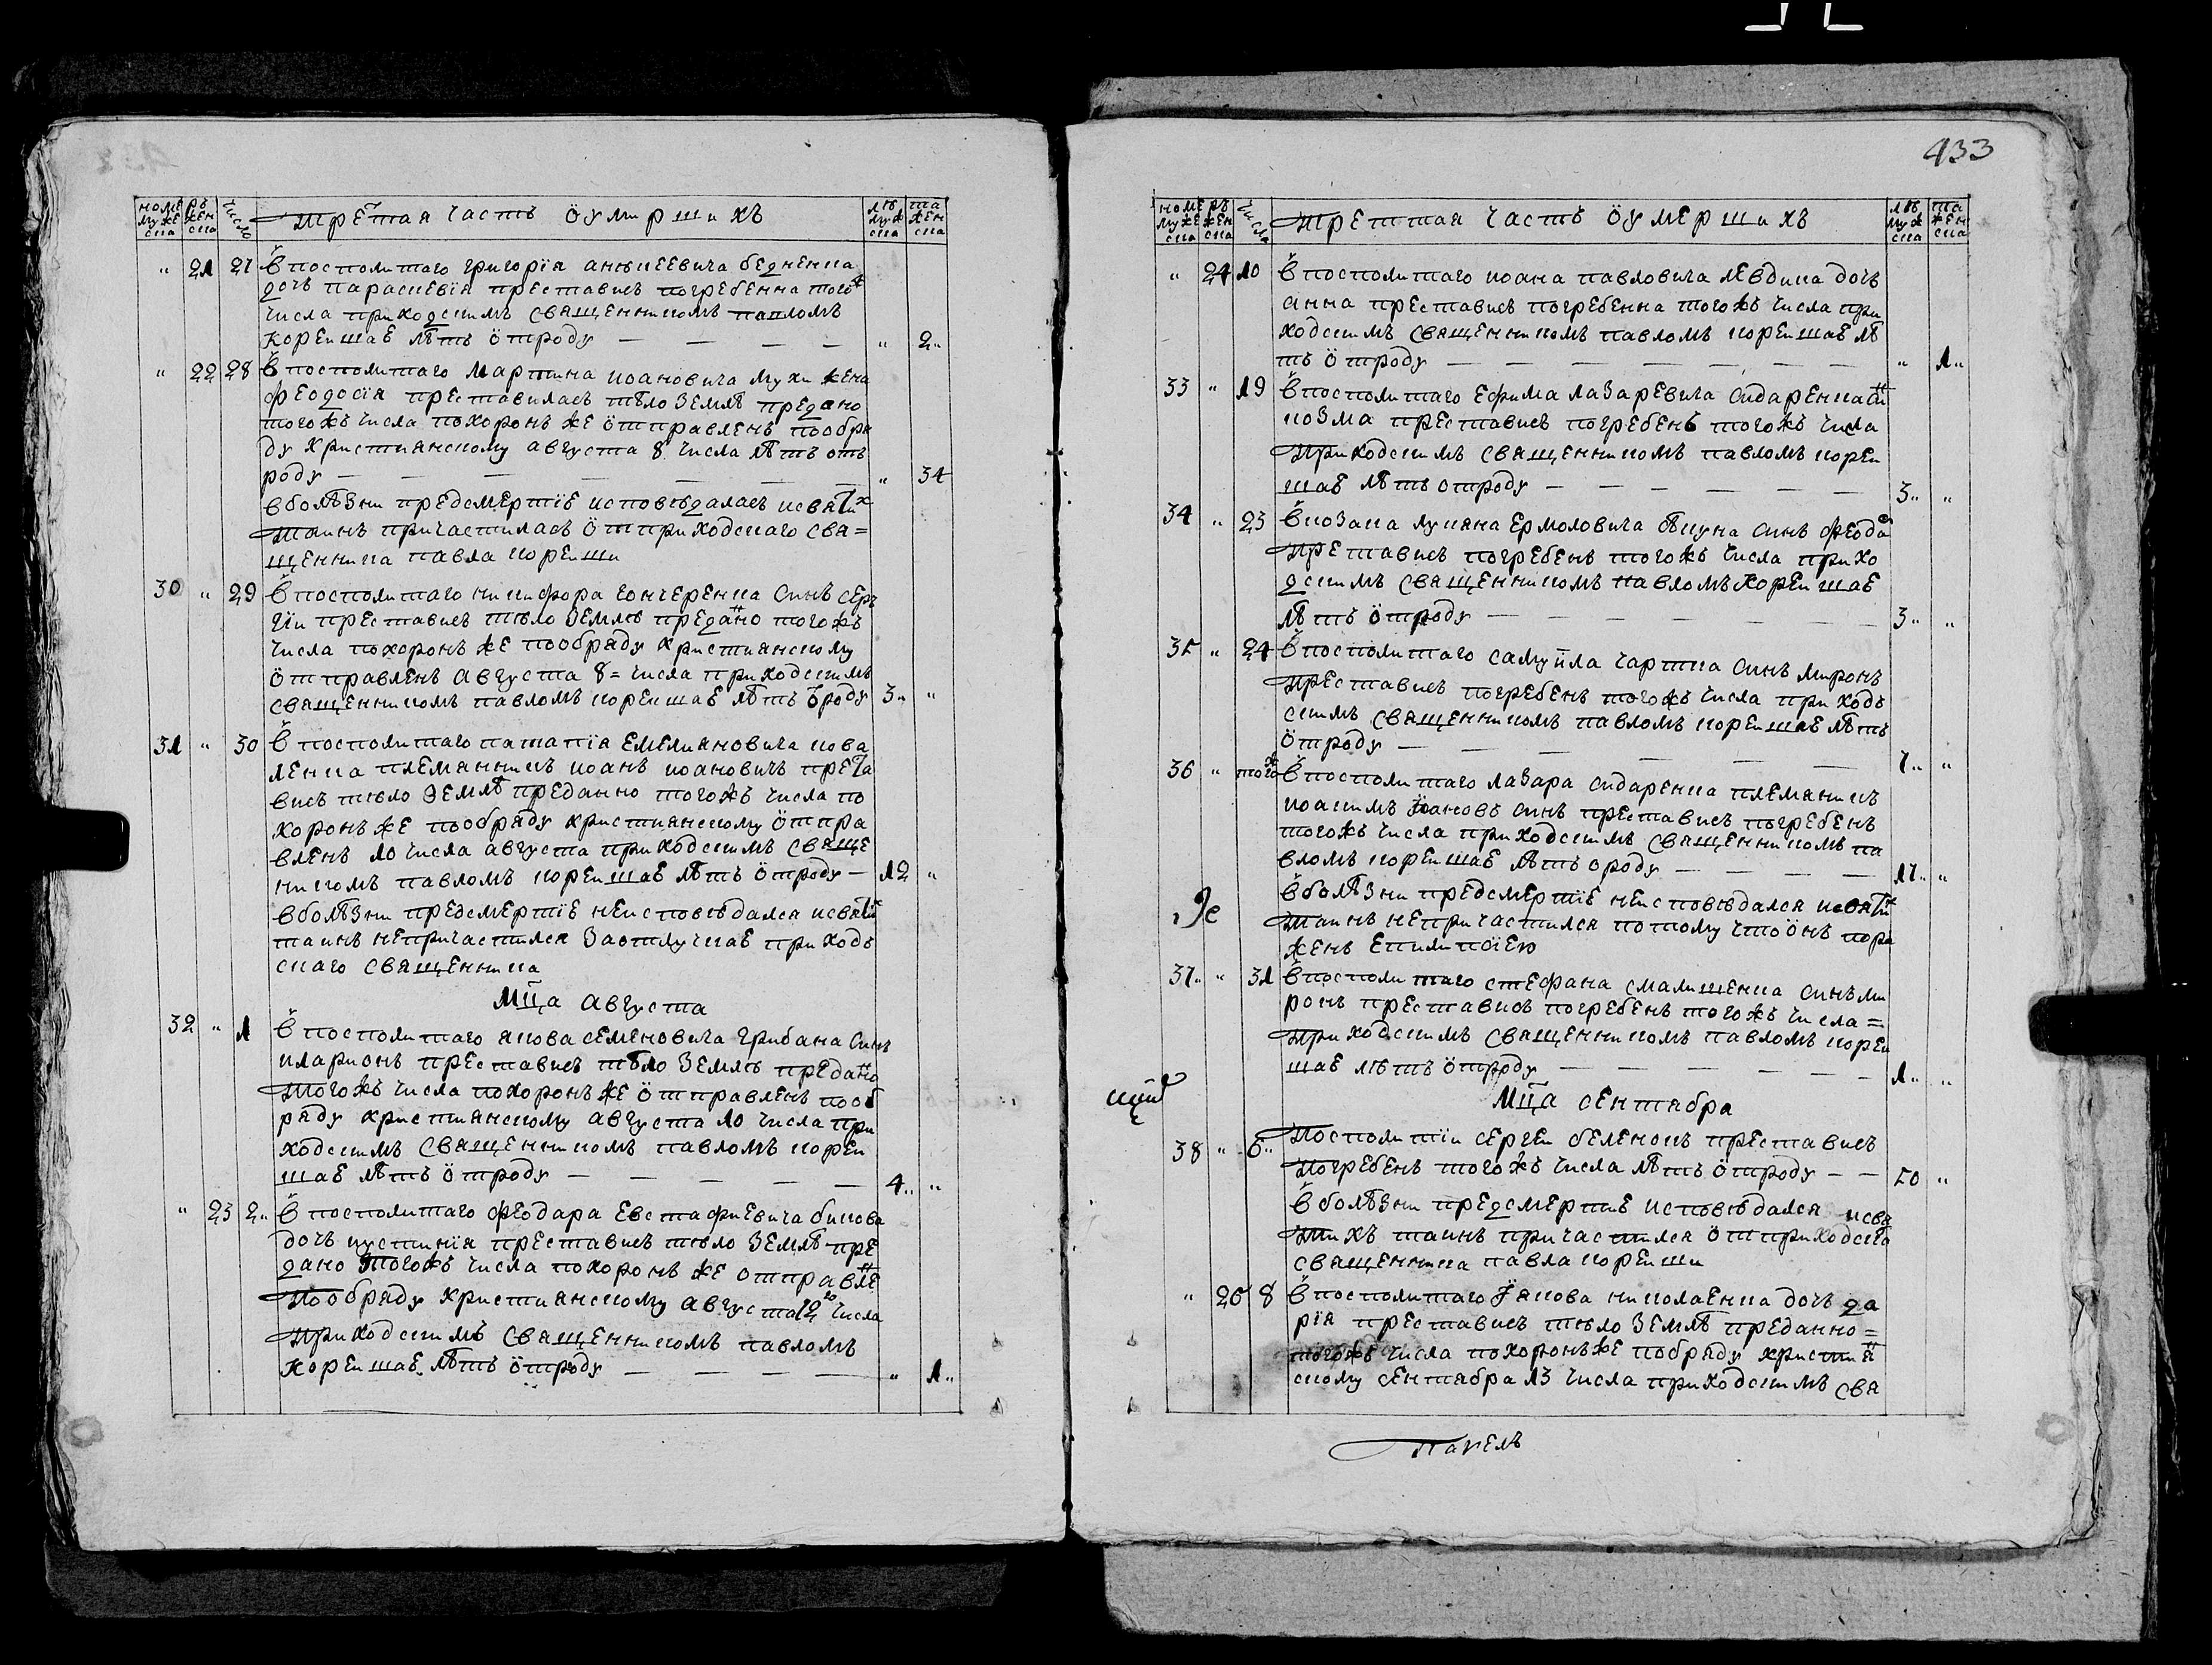 номе ръ
муже жен
ска ска
число
Третая часть ѿ умирших
лѣ та
муж жен
ска ска
" 21 27 ѿ посполитаго григорїя анькеевича бедненка
дочь параскевїя преставись погребенна того ж
числа приходскимъ священникомъ павломъ
корейшаЕ лѣтъ ѿ троду — — — — " 2"
" 22 28 ѿ посполитаго мартина иоановича мухи жена
феодосїя преставилась тѣло землѣ предано
тогожъ числа похоронъ же ѿтправленъ пообря
ду христианскому августа 8 числа лѣтъ отъ
роду — — — — — " 34
вболѣзни предсмертïе исповѣдалась исвятих
таинъ причастилась ѿт приходскаго свя=
щенника павла корейши
30 " 29 ѿ посполитаго никифора гончеренка синъ сер
гїи преставись тѣло землѣ предано тогожъ
числа похоронъ же пообряду христианскому
ѿтправленъ августа 8= числа приходскимъ
священникомъ павломъ корейшаЕ лѣтъ ѿ роду 3" "
31 " 30 ѿ посполитаго патапїя емелияновича кова
ленка племянникъ иоанъ иоановичъ преста
вись тѣло землѣ преданно тогожъ числа по
хоронъ же пообряду христианскому ѿтпра
вленъ 10 числа августа приходскимъ свяще
никомъ павломъ корейшаЕ лѣтъ ѿтроду — 12 "
вболѣзни предсмертïе неисповѣдался исвятих
таинъ непричастился заотлучкаЕ приход
скаго священника
Мца августа
32 " 1 ѿ посполитаго якова семеновича грибана синъ
иларионъ преставись тѣло землѣ предано
тогожъ числа похоронъ же ѿтправленъ пооб
ряду христианскому августа 10 числа при
ходскимъ священникомъ павломъ корей
шаЕ лѣтъ ѿтроду — — — — — 4" "
" 23 2" ѿ посполитаго феодара евстафиевича бикова
дочь иустинїя преставись тѣло землѣ пре
дано тогожъ числа похоронъ же отправле
пообряду христианскому августа 12 го числа
приходскимъ священникомъ павломъ
корейшаЕ лѣтъ ѿтроду — — — — " 1"
433
номе ръ
муже жен
ска ска
числа
Треттая часть ѿ умерших
лѣ та
муж жен
ска ска
" 24 10 ѿ посполитаго иоана павловича левдика дочь
анна преставись погребенна тогожъ числа при
ходскимъ священникомъ павломъ корейшаЕ лѣ
тъ ѿтроду — — — — — — — " 1"
33 " 19 ѿ посполитаго ефима лазаревича сидаренка синъ
козма преставись погребенъ тогожъ числа
приходскимъ священникомъ павломъ корей
шаЕ лѣтъ отроду — — — — — — 3" "
34 " 23 ѿ козака лукяна ермоловича бѣкуна синъ феодо
преставись погребенъ тогожъ числа прихо
дскимъ священникомъ павломъ корейшаЕ
лѣтъ ѿтроду — — — — — — — 3" "
35 " 24 ѿ посполитаго самуила чартка синъ миронъ
преставись погребенъ тогожъ числа приходъ
скимъ священникомъ павломъ корейшаЕ лѣтъ
ѿтроду — — — — — — 7" "
36 " того ж ѿ посполитаго лазара сидаренка племяникъ
иоакимъ иоановъ синъ преставись погребенъ
тогожъ числа приходскимъ священникомъ па
вломъ корейшаЕ лѣтъ ѿроду — — — — 17" "
ѿ болѣзни предсмертïе неисповѣдался исвятих
таинъ непричастился потому что онъ пора
женъ епилипсїею
37" " 31 ѿ посполитаго стефана смалишенка синъ ми
ронъ преставись погребенъ тогожъ числа=
приходскимъ священникомъ павломъ корей
шаЕ лѣтъ ѿтроду — — — — — — 1" "
Мца сентября
38 " 6" посполитїи сергеи беленокъ преставись
погребенъ тогожъ числа лѣтъ ѿтроду — — 50 "
ѿ болѣзни предсмертиЕ исповѣдался исвя
тихъ таинъ причастился ѿтприходска
священника павла корейши
" 26 8 ѿ посполитаго якова николаенка дочь да
рїя преставись тѣло землѣ преданно=
тогожъ числа похоронъ же побряду христиан
скому сентября 13 числа приходскимъ свя
Павелъ